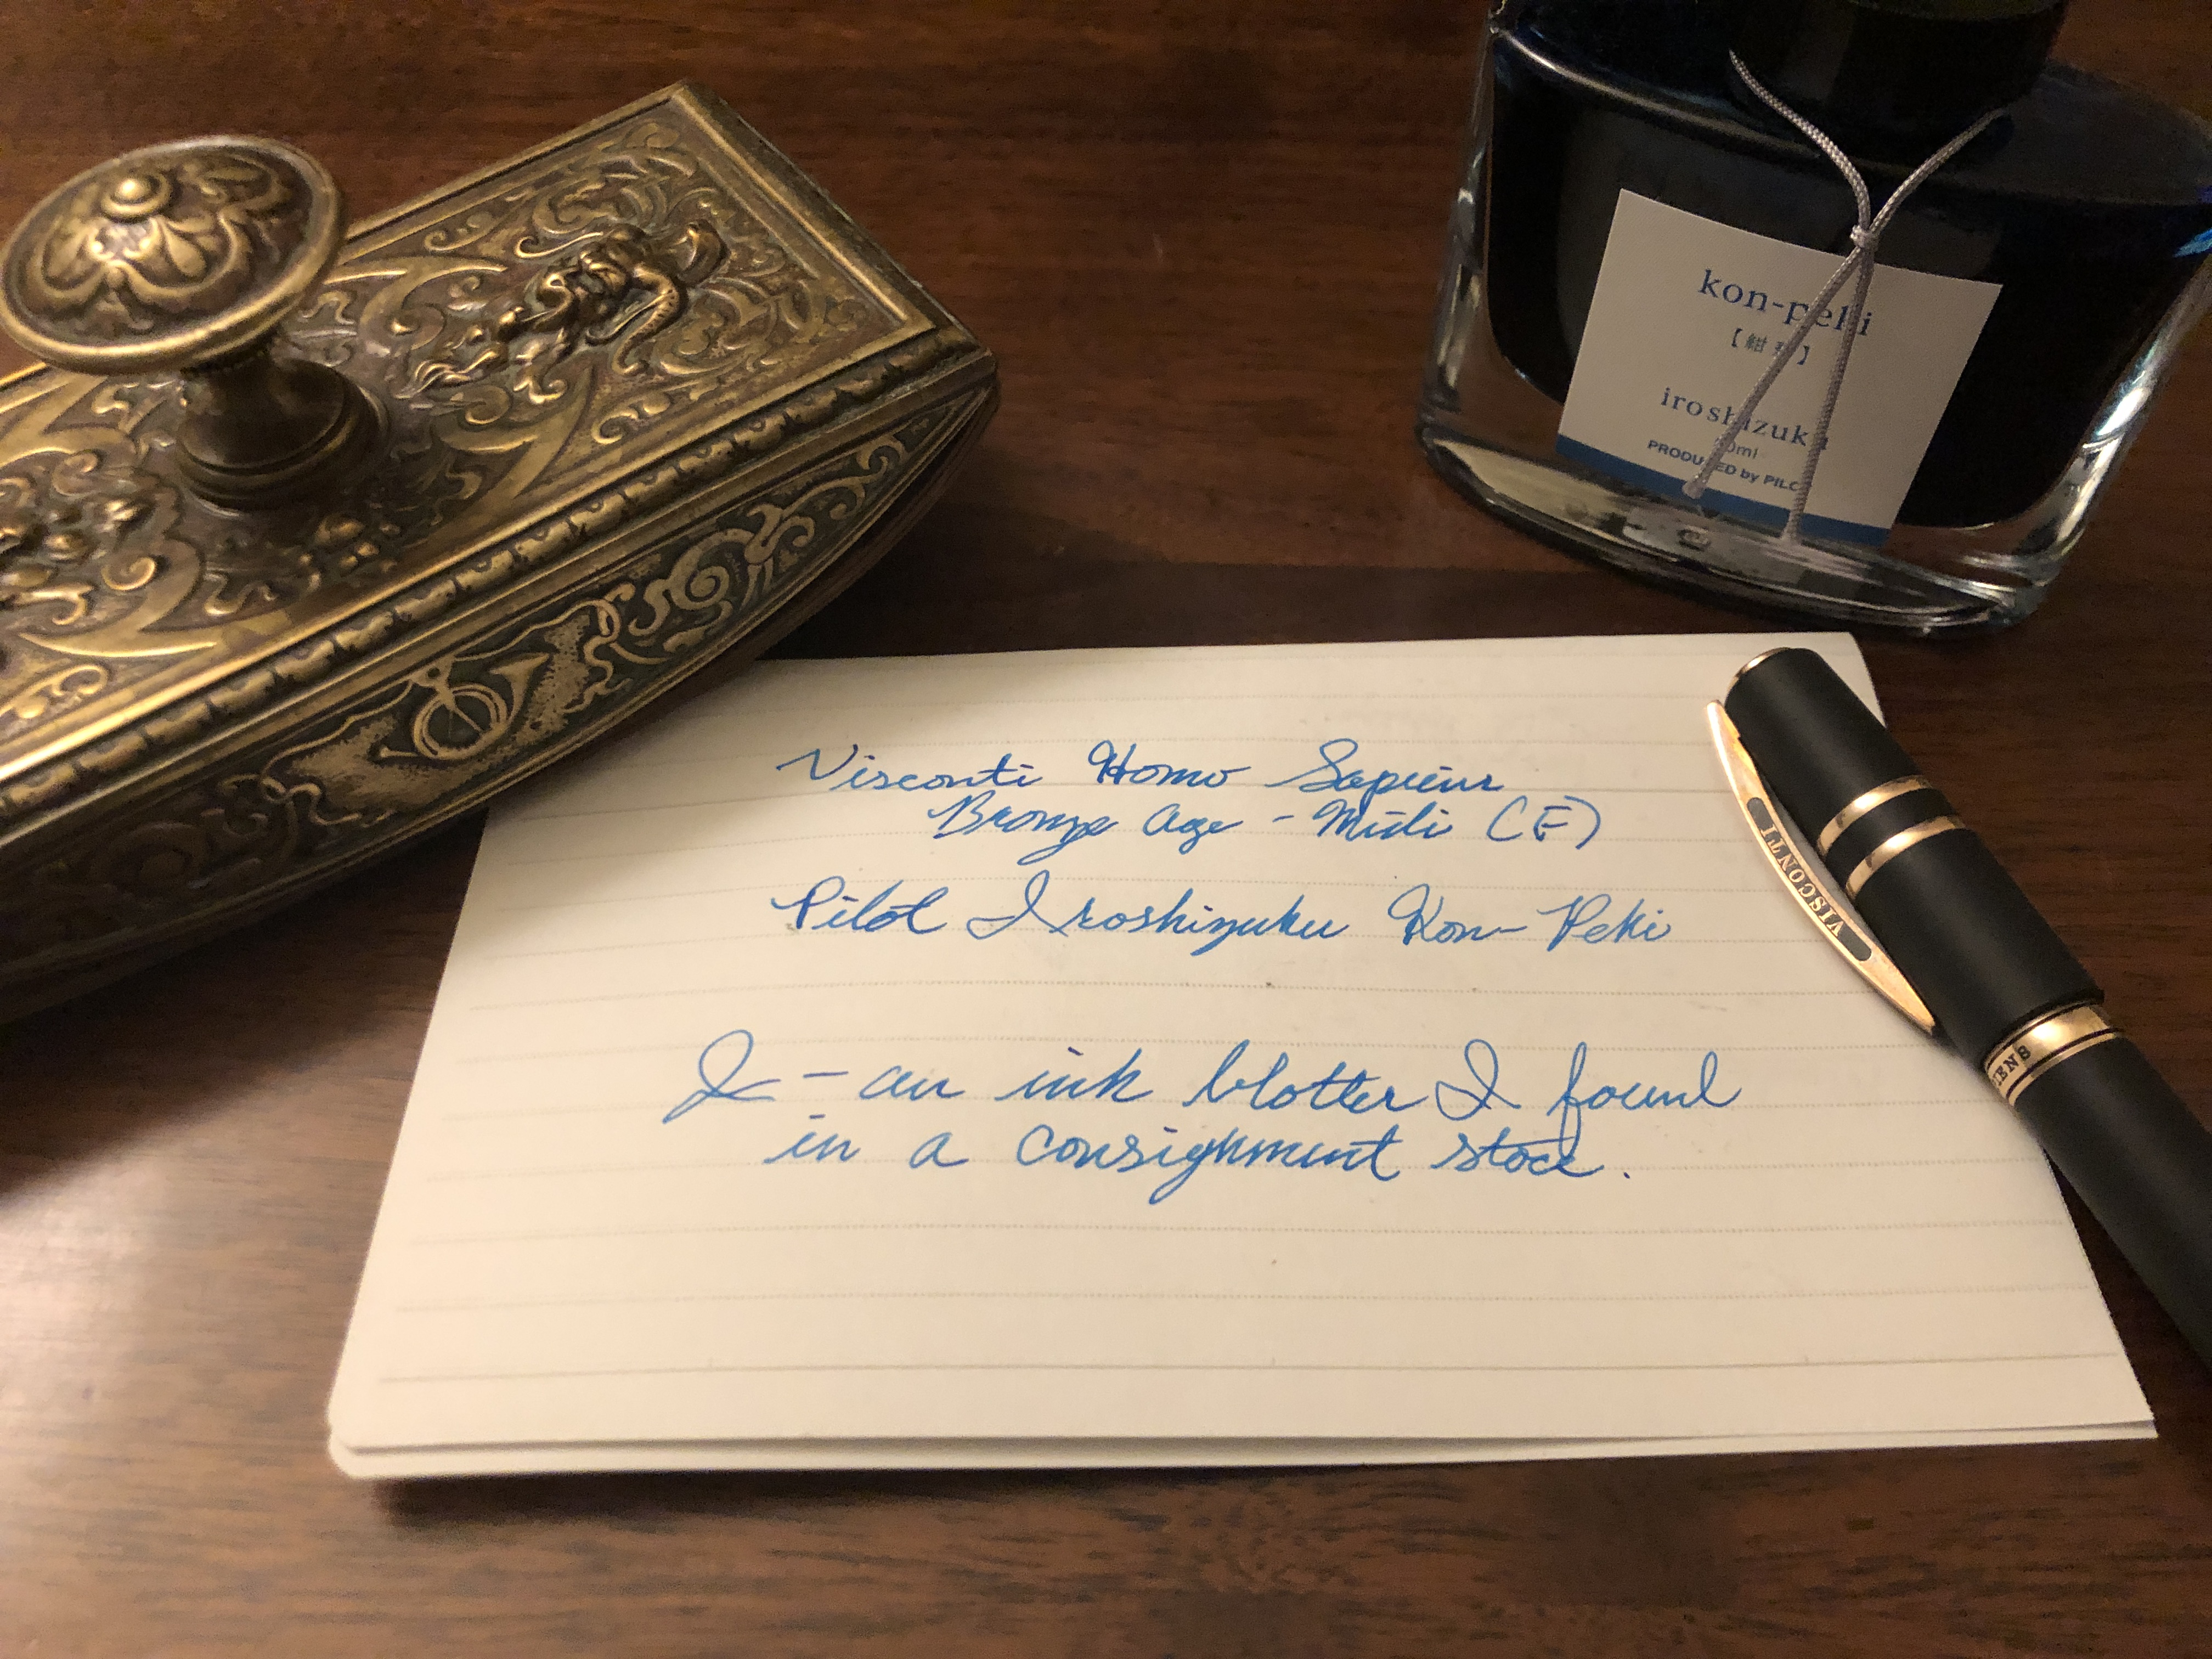 kon-peki
【紺碧】
iroshizuku
50ml
PRODUCED by PILOT
Visconti Homo Sapiens
Bronze Age - Midi (F)
Pilot Iroshizuku Kon-Peki
I - an ink blotter I found
in a consignment store.
VISCONTI
IENS